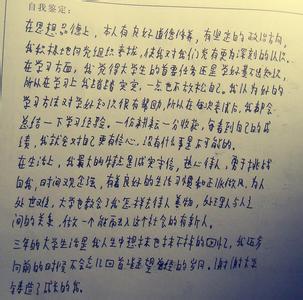 自我鉴定:
在思想品德上，本人有良好道德修养，有坚定的政治方向，
我积极地向党组织靠拢，使我对我们党有更为深刻的认识。
在学习方面，我觉得大学生的首要任务还是学好基础知识，
所以在学习上我踏踏实实，一点也不放松自己。我认为好的
学习方法对学好知识很有帮助，所以在每次考试后，我都会
总结一下学习经验。一份耕耘一分收获，每看到自己的成
绩，我就会对自己更有信心，没有什么事是不可能的。
在生活上，我最大的特点是诚实守信，热心待人，勇于挑战
自我，时间观念强，有着良好的生活习惯和正派作风。为人
处世坦，大学也教会了我怎样去待人善物，处理人与人之
间的关系，做一个能面对这个社会的有新人。
三年的大学生活是我人生中想抹也抹不掉的回忆，我在奔
向前的时候不会忘记回首遥望曾经的岁月。谢谢大学